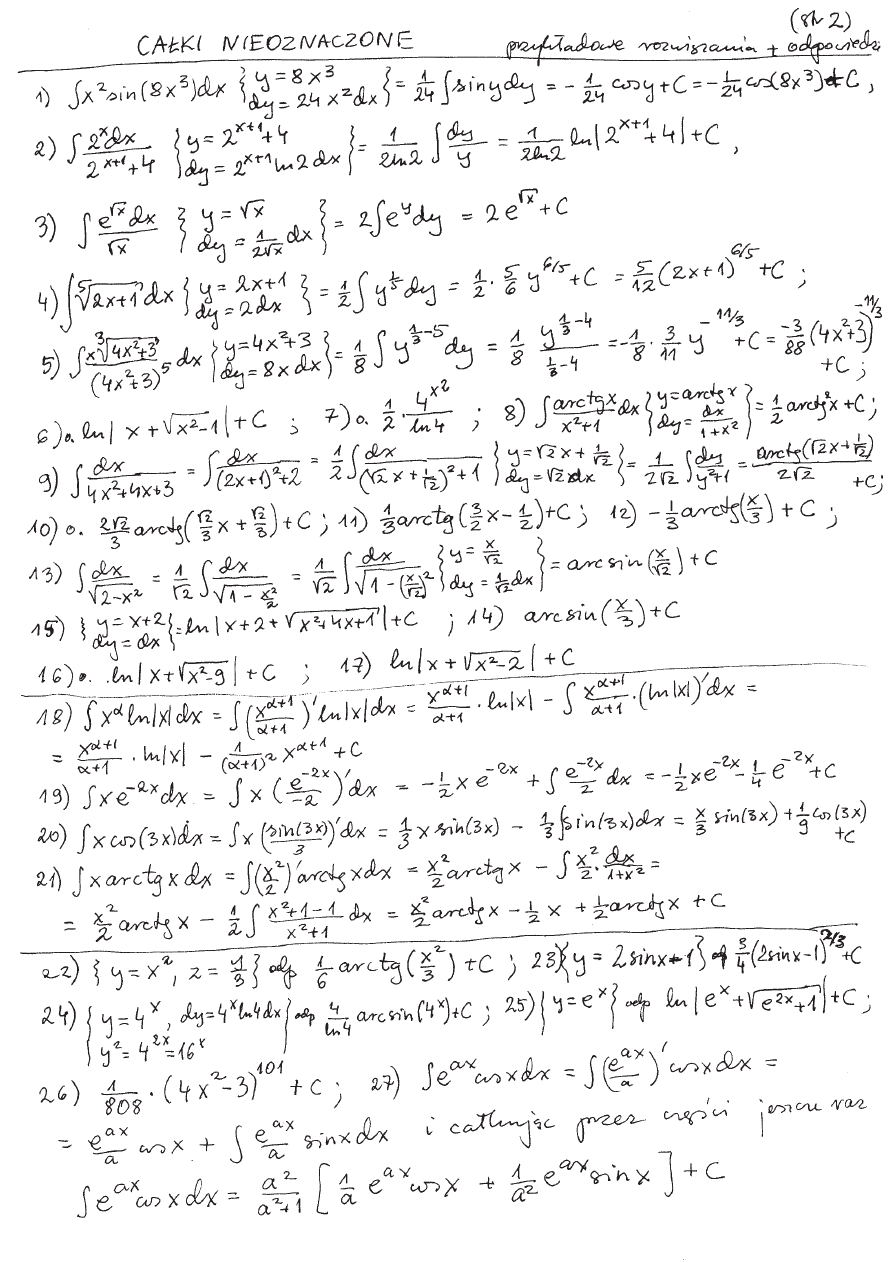 (str 2)
CAŁKI NIEOZNACZONE przykładowe rozwiązania + odpowiedzi
1) ∫x²sin(8x³)dx {y=8x³ dy=24x²dx} = 1/24 ∫siny dy = -1/24 cosy + C = -1/24 cos(8x³)+C,
2) ∫ 2ˣdx/(2ˣ⁺¹+4) {y=2ˣ⁺¹+4 dy=2ˣ⁺¹ln2dx} = 1/(2ln2) ∫ dy/y = 1/(2ln2) ln|2ˣ⁺¹+4|+C,
3) ∫ e^√x dx/√x {y=√x dy=1/(2√x) dx} = 2∫eʸdy = 2e^√x + C
4) ∫ ⁵√(2x+1) dx {y=2x+1 dy=2dx} = 1/2 ∫ y^(1/5) dy = 1/2 · 5/6 y^(6/5) + C = 5/12 (2x+1)^(6/5) + C ;
5) ∫ x ³√(4x²+3)/(4x²+3)⁵ dx {y=4x²+3 dy=8xdx} = 1/8 ∫ y^(1/3-5) dy = 1/8 y^(1/3-4)/(1/3-4) = -1/8 · 3/11 y^(-11/3) + C = -3/88 (4x²+3)^(-11/3) + C ;
6) o. ln|x+√(x²-1)|+C ; 7) o. 1/2 · 4^(x²)/ln4 ; 8) ∫ arctgx/(x²+1) dx {y=arctgx dy=dx/(1+x²)} = 1/2 arctg²x + C ;
9) ∫ dx/(4x²+4x+3) = ∫ dx/((2x+1)²+2) = 1/2 ∫ dx/((√2x+1/√2)²+1) {y=√2x+1/√2 dy=√2dx} = 1/(2√2) ∫ dy/(y²+1) = arctg(√2x+1/√2)/(2√2) + C ;
10) o. 2√2/3 arctg(√2/3 x + √2/3) + C ; 11) 1/3 arctg(3/2 x - 1/2)+C ; 12) -1/3 arctg(x/3) + C ;
13) ∫ dx/√(2-x²) = 1/√2 ∫ dx/√(1-x²/2) = 1/√2 ∫ dx/√(1-(x/√2)²) {y=x/√2 dy=1/√2 dx} = arcsin(x/√2) + C
15) {y=x+2 dy=dx} = ln|x+2+√(x²+4x+1)|+C ; 14) arcsin(x/3)+C
16) o. ln|x+√(x²-9)| + C ; 17) ln|x+√(x²-2)| + C
18) ∫x^α ln|x|dx = ∫(x^(α+1)/(α+1))' ln|x|dx = x^(α+1)/(α+1) · ln|x| - ∫ x^(α+1)/(α+1) · (ln|x|)'dx =
= x^(α+1)/(α+1) · ln|x| - 1/(α+1)² x^(α+1) + C
19) ∫xe^(-2x)dx = ∫x(e^(-2x)/-2)'dx = -1/2 x e^(-2x) + ∫ e^(-2x)/2 dx = -1/2 xe^(-2x) - 1/4 e^(-2x) + C
20) ∫xcos(3x)dx = ∫x(sin(3x)/3)'dx = 1/3 x sin(3x) - 1/3 ∫sin(3x)dx = x/3 sin(3x) + 1/9 cos(3x) + C
21) ∫xarctgxdx = ∫(x²/2)'arctgxdx = x²/2 arctgx - ∫ x²/2 · dx/(1+x²) =
= x²/2 arctgx - 1/2 ∫ (x²+1-1)/(x²+1) dx = x²/2 arctgx - 1/2 x + 1/2 arctgx + C
22) {y=x², z=y/3} odp 1/6 arctg(x²/3) + C ; 23) {y=2sinx-1} odp 3/4 (2sinx-1)^(2/3) + C
24) {y=4ˣ, dy=4ˣln4dx y²=4²ˣ=16ˣ} odp 4/ln4 arcsin(4ˣ)+C ; 25) {y=eˣ} odp ln|eˣ+√(e²ˣ+1)|+C ;
26) 1/808 · (4x²-3)¹⁰¹ + C ; 27) ∫e^(ax)cosxdx = ∫(e^(ax)/a)'cosxdx =
= e^(ax)/a cosx + ∫ e^(ax)/a sinxdx i całkując przez części jeszcze raz
∫e^(ax)cosxdx = a²/(a²+1) [1/a e^(ax)cosx + 1/a² e^(ax)sinx] + C